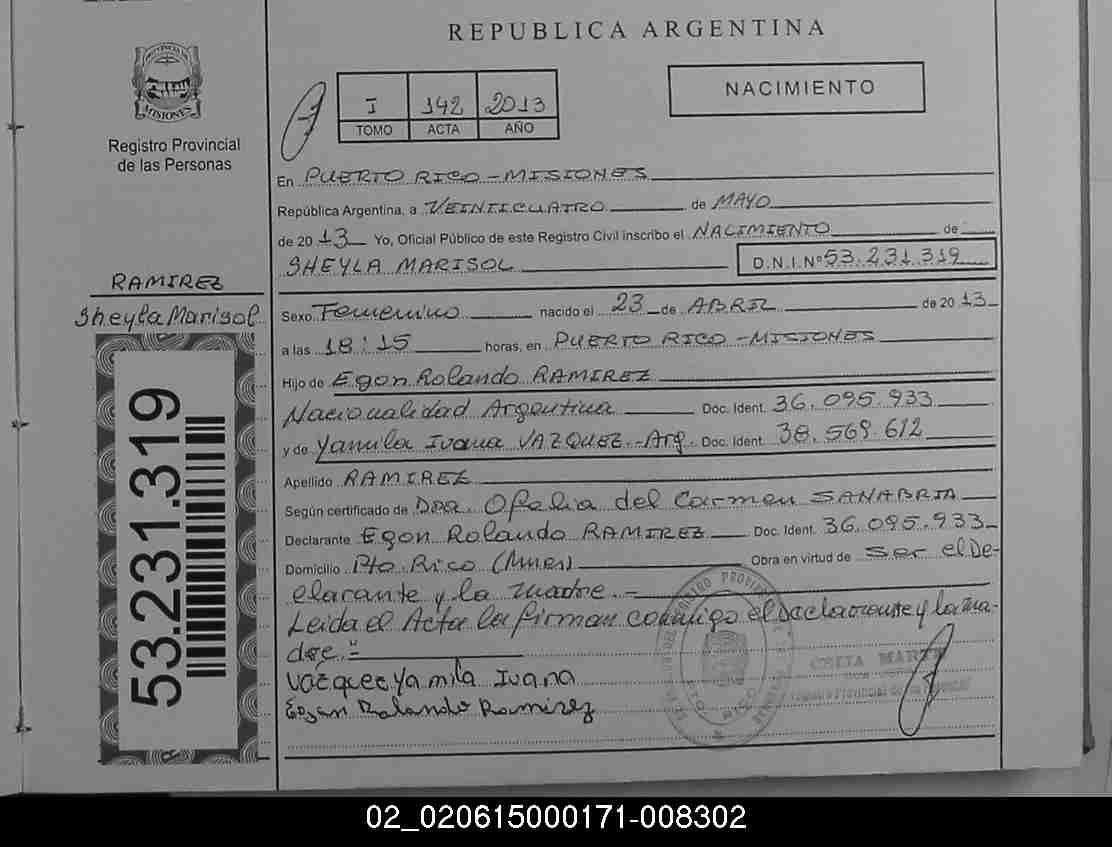 REPUBLICA ARGENTINA
PROVINCIA DE
MISIONES
Registro Provincial
de las Personas
I 142 2013
TOMO ACTA AÑO
NACIMIENTO
En PUERTO RICO - MISIONES
República Argentina, a VEINTICUATRO de MAYO
de 2013 Yo, Oficial Público de este Registro Civil inscribo el NACIMIENTO de
SHEYLA MARISOL D.N.I.Nº 53.231.319
RAMIREZ
Sheyla Marisol
53.231.319
Sexo Femenino nacido el 23 de ABRIL de 2013
a las 18:15 horas, en PUERTO RICO - MISIONES
Hijo de Egon Rolando RAMIREZ
Nacionalidad Argentina Doc. Ident. 36.095.933
y de Yamila Ivana VAZQUEZ.-Arg. Doc. Ident. 38.569.612
Apellido RAMIREZ
Según certificado de Dra. Ofelia del Carmen SANABRIA
Declarante Egon Rolando RAMIREZ Doc. Ident. 36.095.933
Domicilio Pto. Rico (Mnes) Obra en virtud de ser el De-
clarante y la madre.-
Leída el Acta la firman conmigo el declarante y la ma-
dre.-
Vazquez Yamila Ivana
Egon Rolando Ramirez
RICO
02_020615000171-008302